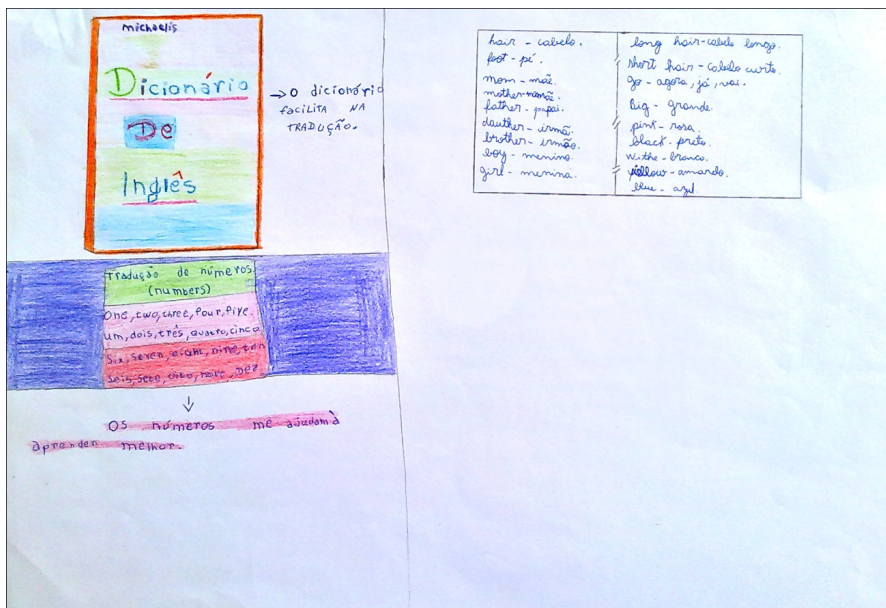 michaelis
Dicionário
De
Inglês
→ O dicionário
facilita na
tradução.
Tradução de números
(numbers)
One, two, three, four, five.
um, dois, três, quatro, cinco
Six, seven, eight, nine, ten
seis, sete, oito, nove, Dez
Os números me ajudam à
aprender melhor.
hair - cabelo.
foot - pé.
mom - mãe.
mother-mamãe.
father - papai.
dauther - irmã.
brother - irmão.
boy - menino.
girl - menina.
long hair-cabelo longo.
short hair - cabelo curto.
go - agora, já, vai.
Big - grande.
pink - rosa.
black - preto.
withe - branco.
yellow - amarelo.
blue - azul